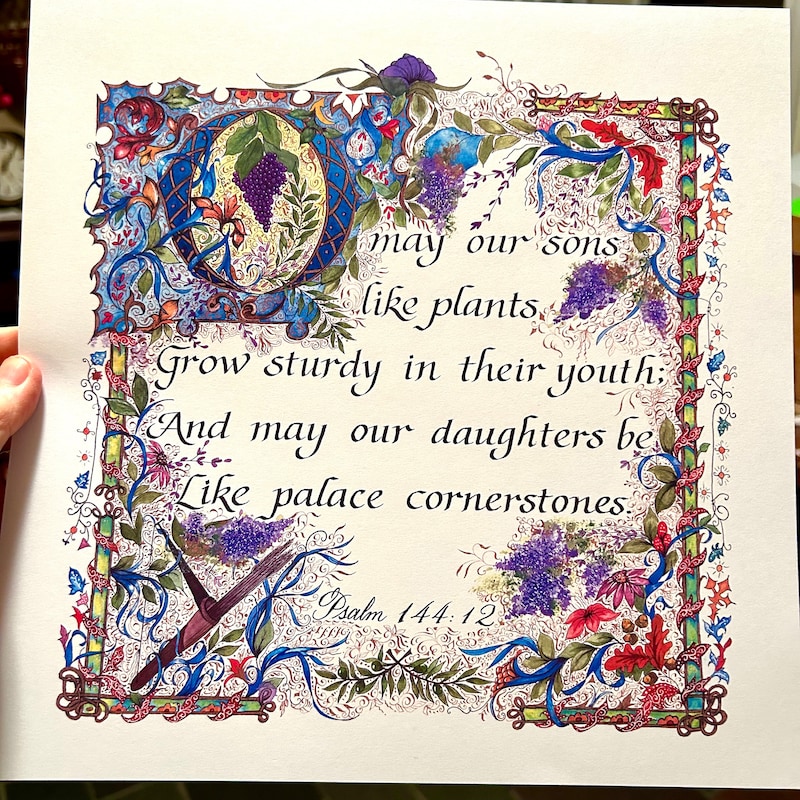 O may our sons
like plants
Grow sturdy in their youth;
And may our daughters be
Like palace cornerstones.
Psalm 144:12